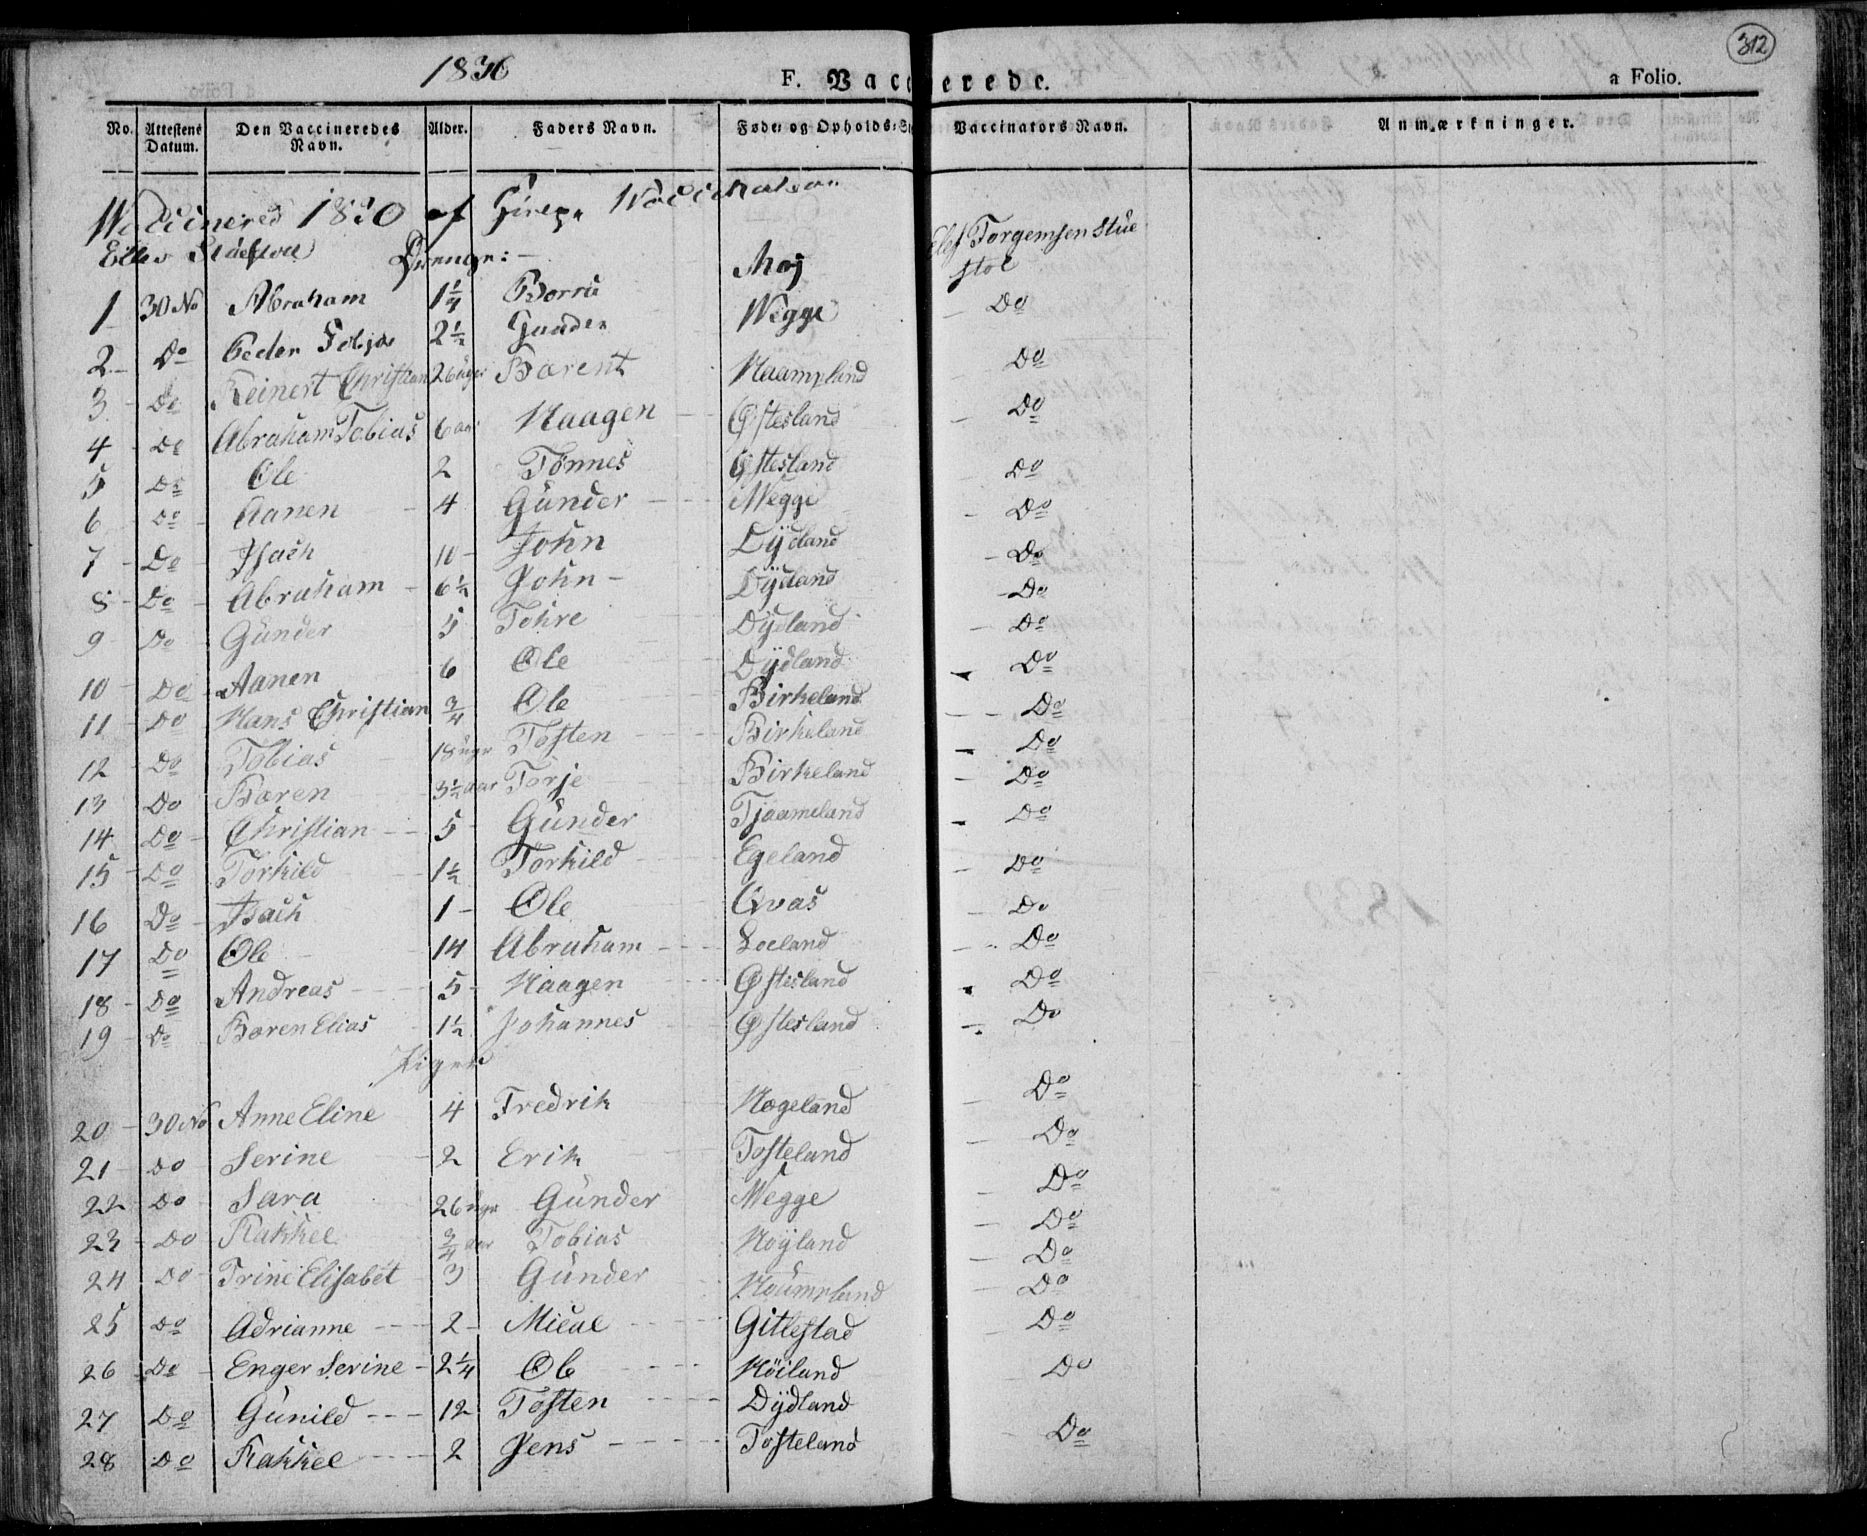 312
1830
F. Vaccinerede.
a Folio.
No. Attestens Datum. Den Vaccineredes Navn. Alder. Faders Navn. Føde- og Opholds-St Vaccinators Navn. Anmærkninger.
1830 af
Drenge: Torgemsen Stue
stol
1 30 No Abraham 1 1/4 Moj Do
2 Do Peder 2 1/2 Gunder Wegge Do
3 Do Reinert Christian 26 uger Barent Do
4 Do Abraham Tobias 6 aar Haagen Østesland Do
5 Do Ole 2 Tønnes Østesland Do
6 Do Aanen 4 Gunder Wegge Do
7 Do Isach 10 John Dÿdland Do
8 Do Abraham 6 1/2 John Dÿdland Do
9 Do Gunder 5 Tohre Dÿdland Do
10 Do Aanen 6 Ole Dÿdland Do
11 Do Hans Christian 3/4 Ole Birkeland Do
12 Do Tobias 18 ugr Tosten Birkeland Do
13 Do Baren 3 1/2 aar Torje Birkeland Do
14 Do Christian 5 Gunder Tjaameland Do
15 Do Torkild 1 1/2 Torkild Egeland Do
16 Do Isach 1 Ole Qvas Do
17 Do Ole 14 Abraham Loeland Do
18 Do Andreas 5 Haagen Østesland Do
19 Do Baren Elias 1 1/2 Johannes Østesland Do
Piger
20 30 No Anne Eline 4 Fredrik Hogeland Do
21 Do Serine 2 Erik Tosteland Do
22 Do Sara 26 ugr Gunder Wegge Do
23 Do Rakkel 3/4 aar Tobias Hoÿland Do
24 Do Trine Elisabet 3 Gunder Do
25 Do Adrianne 2 Micael Gitlestad Do
26 Do Enger Serine 2 1/4 Ole Höiland Do
27 Do Gunild 12 Tosten Dÿdland
28 Do Rakkel 2 Jens Tosteland Do